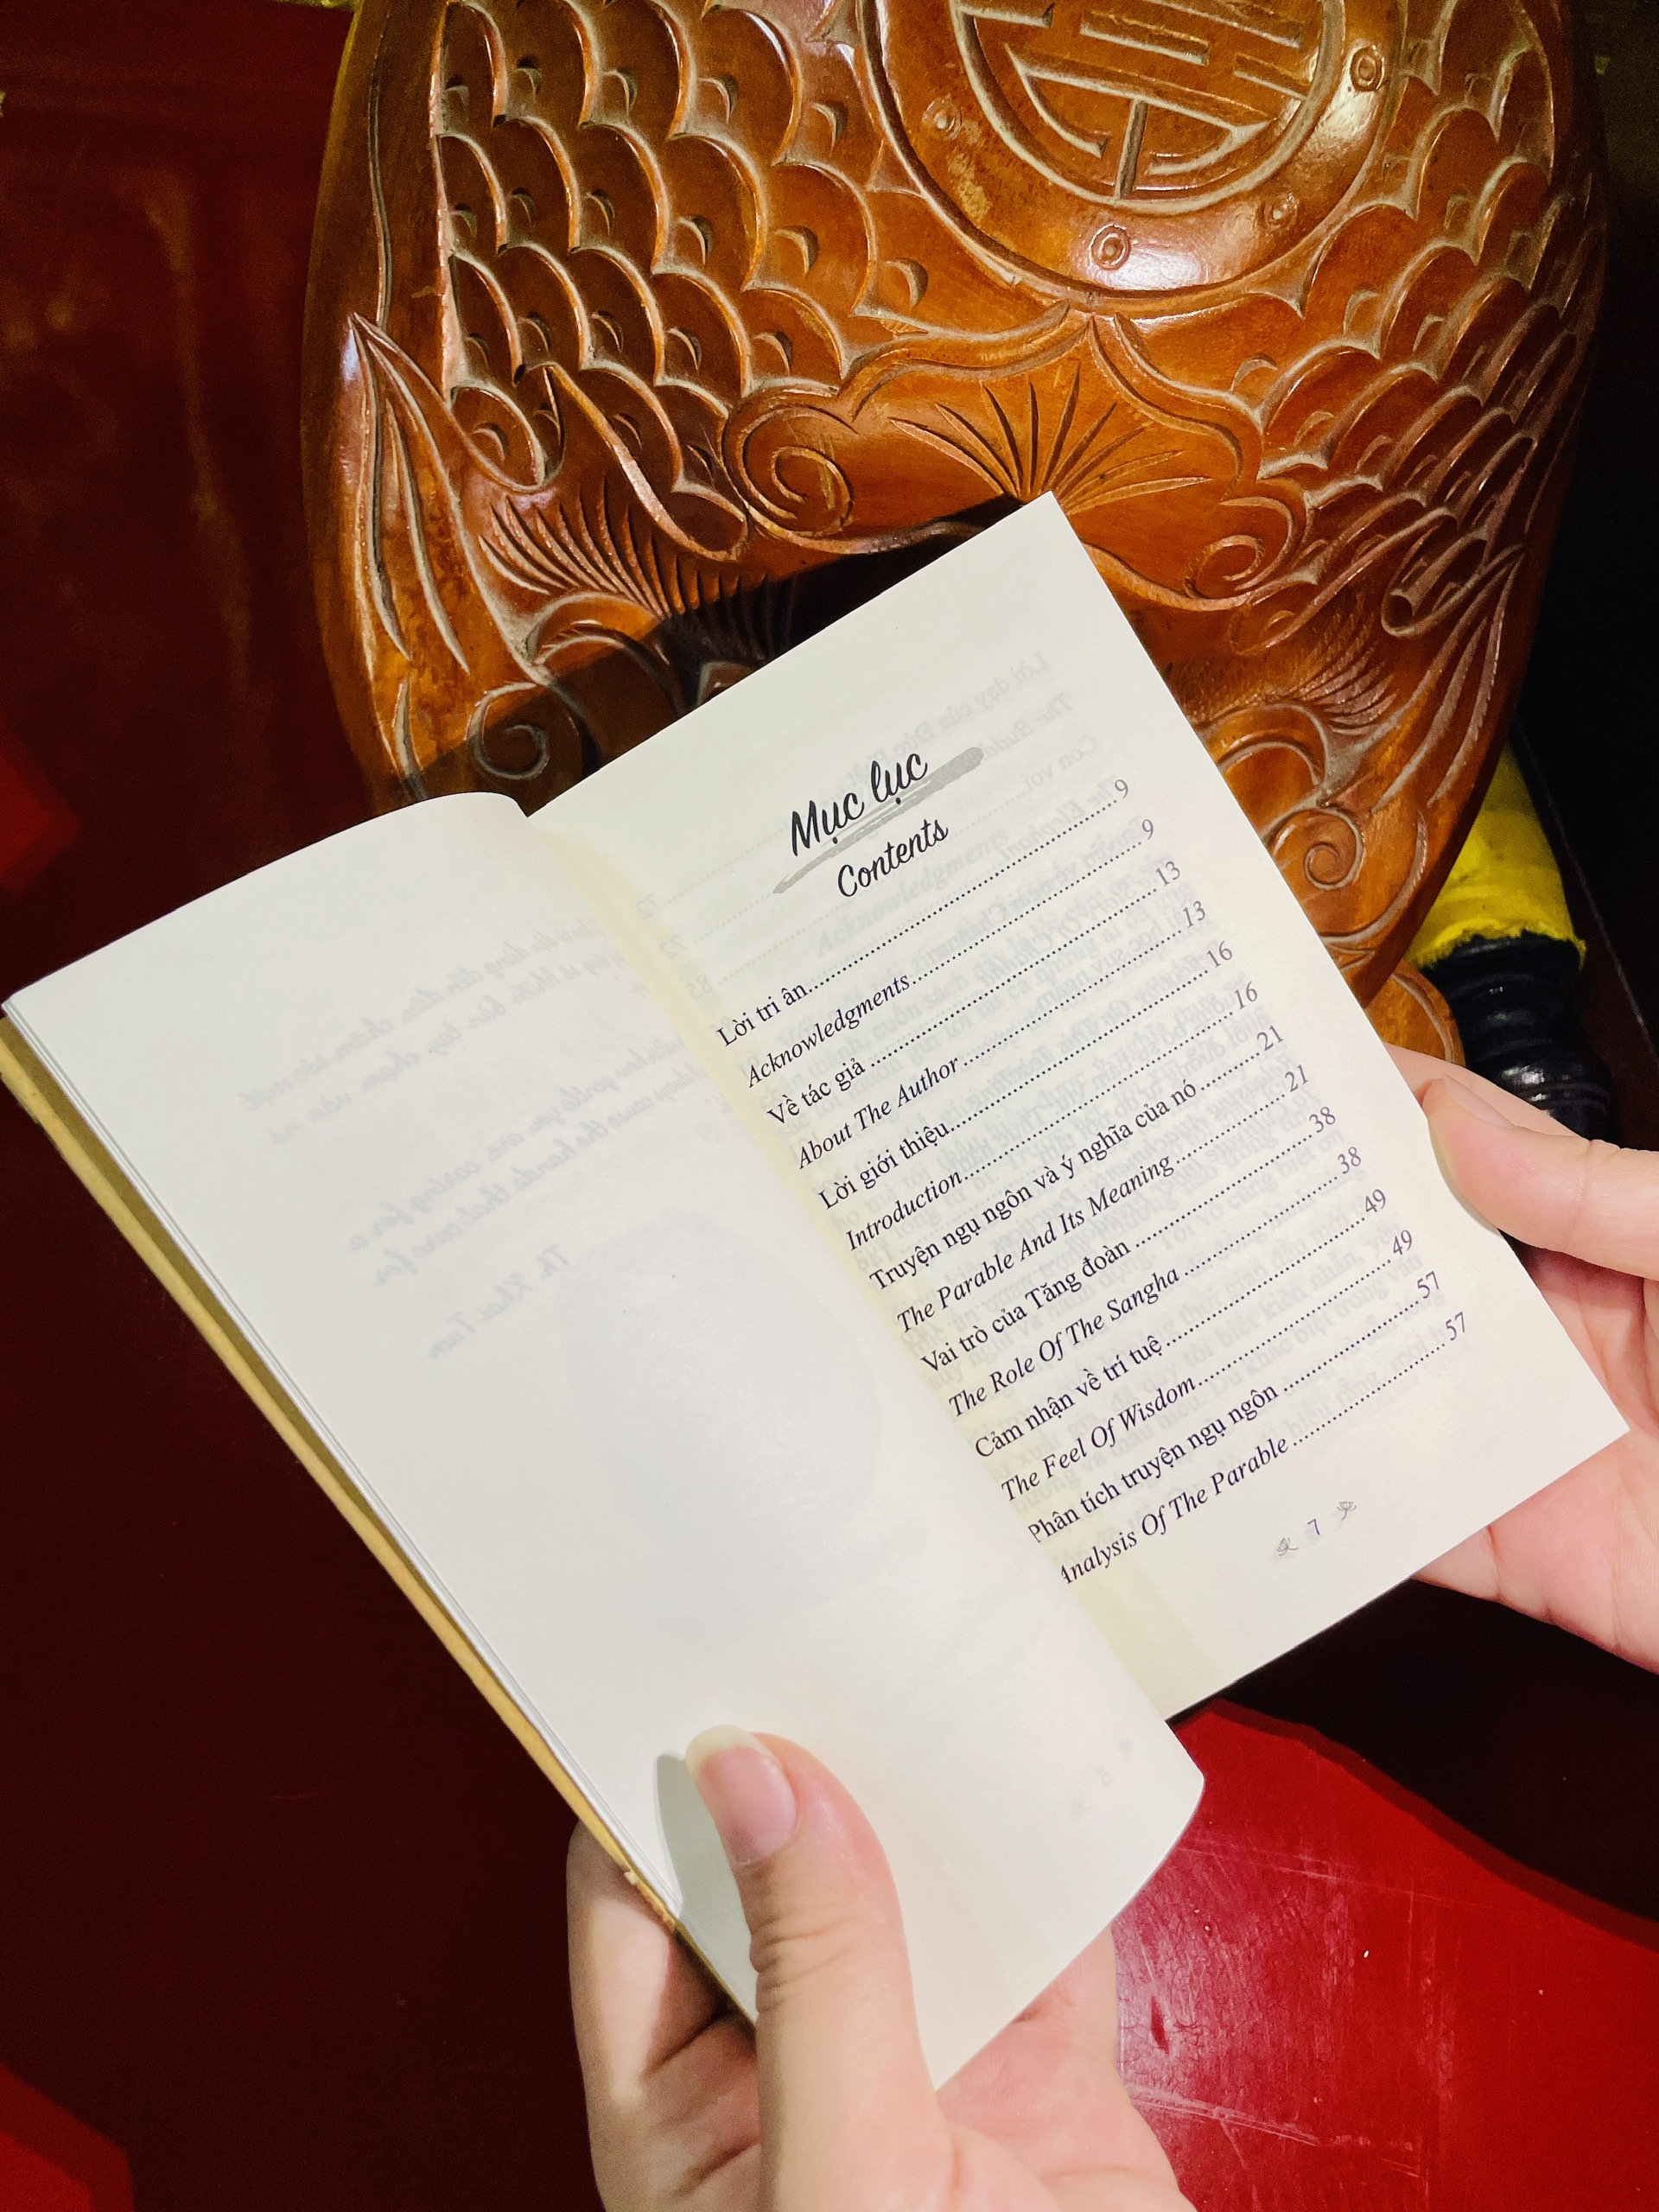 Mục lục
Contents
Lời tri ân.......................................................9
Acknowledgments.......................................9
Về tác giả ...................................................13
About The Author .....................................13
Lời giới thiệu..............................................16
Introduction...............................................16
Truyện ngụ ngôn và ý nghĩa của nó ..........21
The Parable And Its Meaning ...................21
Vai trò của Tăng đoàn ...............................38
The Role Of The Sangha ...........................38
Cảm nhận về trí tuệ ...................................49
The Feel Of Wisdom..................................49
Phân tích truyện ngụ ngôn .......................57
Analysis Of The Parable ...........................57
7